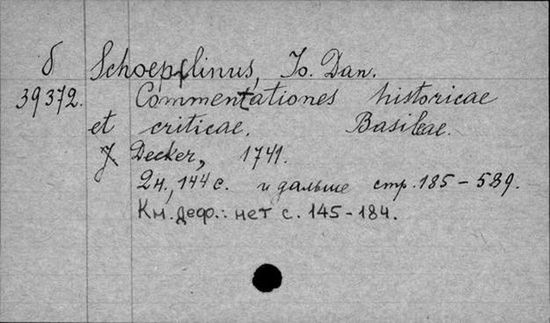 δ Schoepflinus, Io. Dan.
39372. Commentationes historicae
et criticae. Basileae.
J. Decker, 1741.
2н., 144 с. и дальше стр. 185-589.
Кн. деф.: нет с. 145-184.